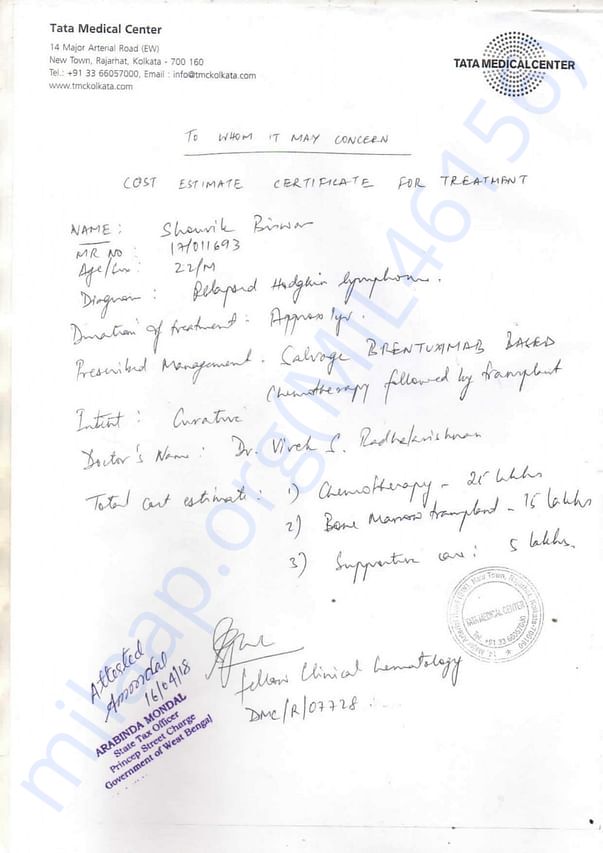 Tata Medical Center
14 Major Arterial Road (EW)
New Town, Rajarhat, Kolkata - 700 160
Tel.: +91 33 66057000, Email : info@tmckolkata.com
www.tmckolkata.com
TATA MEDICAL CENTER
TO WHOM IT MAY CONCERN
COST ESTIMATE CERTIFICATE FOR TREATMENT
NAME : Shouvik Biswas
MR NO : 17/011693
Age/Sex : 22/M
Diagnosis : Relapsed Hodgkin lymphoma.
Duration of treatment : Approx 1yr.
Prescribed Management : Salvage BRENTUXIMAB BASED
Chemotherapy followed by transplant
Intent : Curative
Doctor's Name : Dr. Vivek S. Radhakrishnan
Total cost estimate : 1) Chemotherapy - lakhs
2) Bone Marrow transplant - 15 lakhs
3) Supportive care : 5 lakhs.
TATA MEDICAL CENTER
Fellow Clinical Hematology
DMC/R/07728
Attested
Amondal
16/04/18
ARABINDA MONDAL
State Tax Officer
Princep Street Charge
Government of West Bengal
milaap.org(MIL461456)